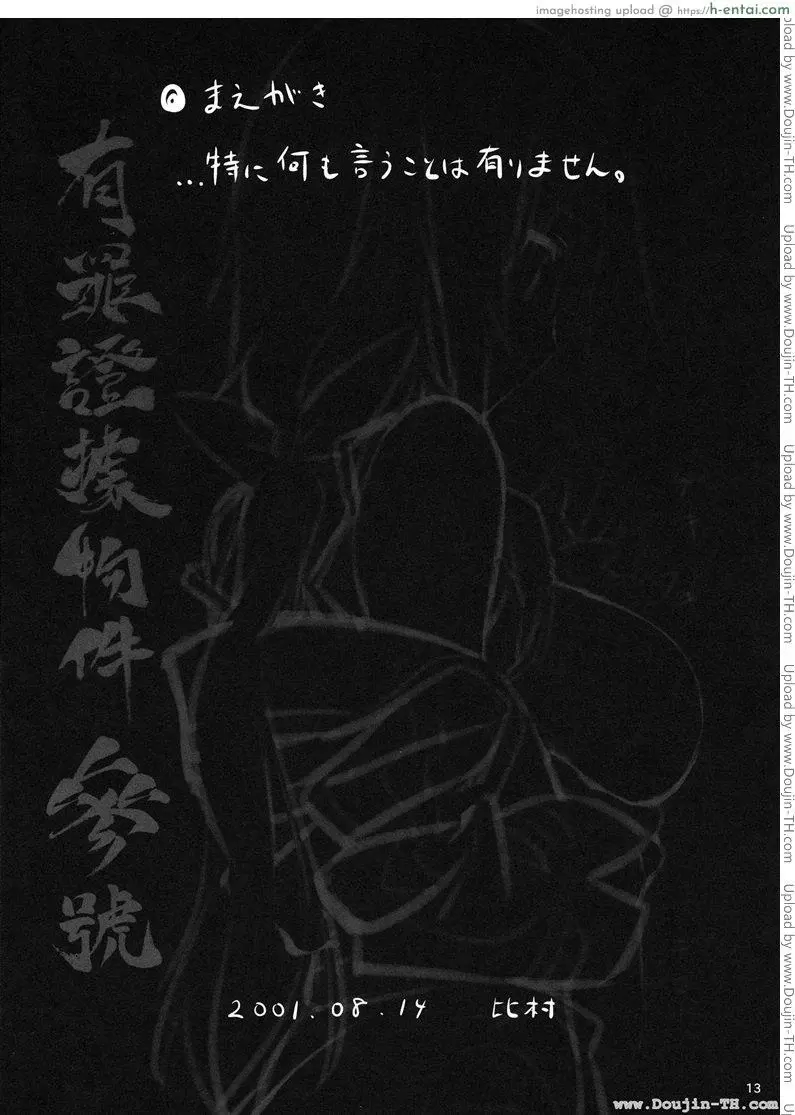 imagehosting upload @ https://h-entai.com
◎まえがき
...特に何も言うことは有りません。
有罪證據物件 參號
2001.08.14 比村
13
www.Doujin-TH.com
Upload by www.Doujin-TH.com
Upload by www.Doujin-TH.com
Upload by www.Doujin-TH.com
Upload by www.Doujin-TH.com
Upload by www.Doujin-TH.com